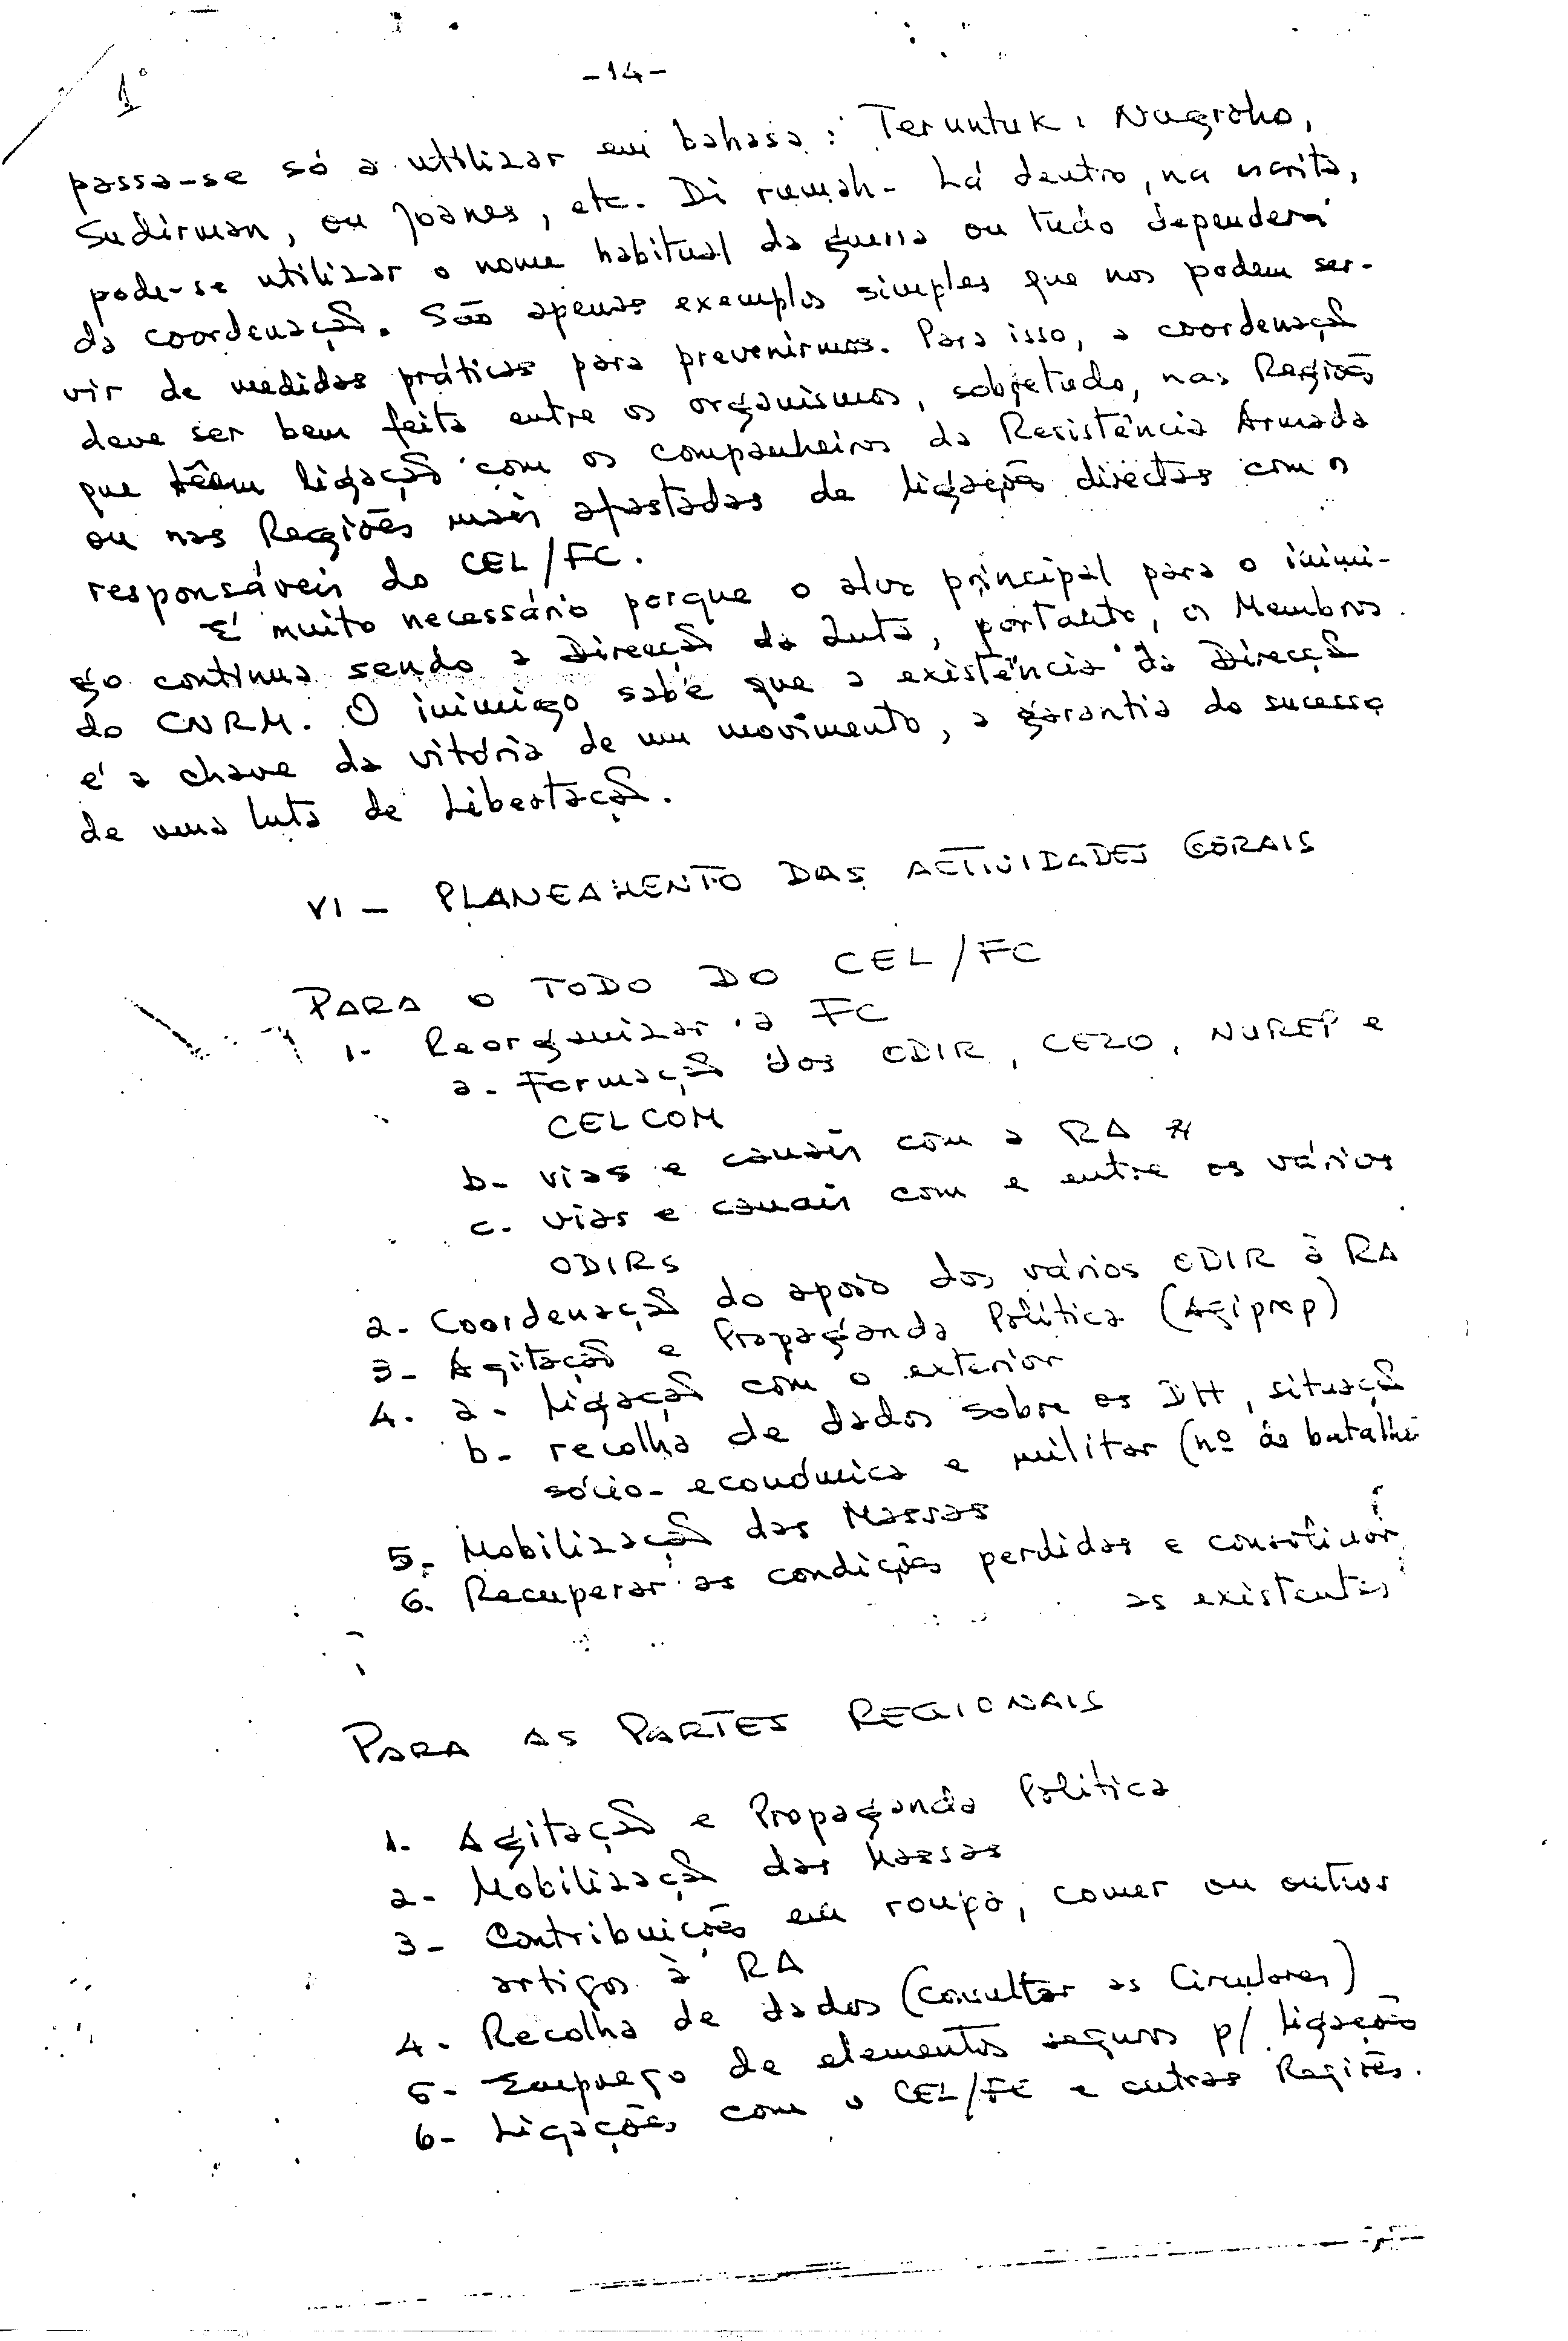 1°
-14-
passa-se só a utilizar em bahasa: Teruntuk: Nugroho,
Sudirman, ou Joanes, etc. Di rumah - Lá dentro, na escrita,
pode-se utilizar o nome habitual da guerra ou tudo dependerá
da coordenação. São apenas exemplos simples que nos podem ser-
vir de medidas práticas para prevenirmos. Para isso, a coordenação
deve ser bem feita entre os organismos, sobretudo, nas Regiões
que têem ligação com os companheiros da Resistência Armada
ou nas Regiões mais afastadas de ligações directas com os
responsáveis do CEL/FC.
É muito necessário porque o alvo principal para o inimi-
go continua sendo a Direcção da Luta, portanto, os Membros
do CNRM. O inimigo sabe que a existência da Direcção
é a chave da vitória de um movimento, a garantia do sucesso
de uma luta de Libertação.
VI - PLANEAMENTO DAS ACTIVIDADES GERAIS
PARA O TODO DO CEL/FC
1- Reorganizar a FC
a- Formação dos ODIR, CEZO, NUREP e
CELCOM
b- vias e canais com a RA
c- vias e canais com e entre os vários
ODIRS
2- Coordenação do apoio dos vários ODIR à RA
3- Agitação e Propaganda Política (Agiprop)
4. a- Ligação com o exterior
b- recolha de dados sobre os DH, situação
sócio-económica e militar (nº de batalhõ
5- Mobilização das Massas
6. Recuperar as condições perdidas e consolidar
as existentes
PARA AS PARTES REGIONAIS
1- Agitação e Propaganda Política
2- Mobilização das Massas
3- Contribuições em roupa, comer ou outros
artigos à RA
4- Recolha de dados (consultar as Circulares)
5- Emprego de elementos seguros p/ Ligação
6- Ligações com o CEL/FC e outras Regiões.